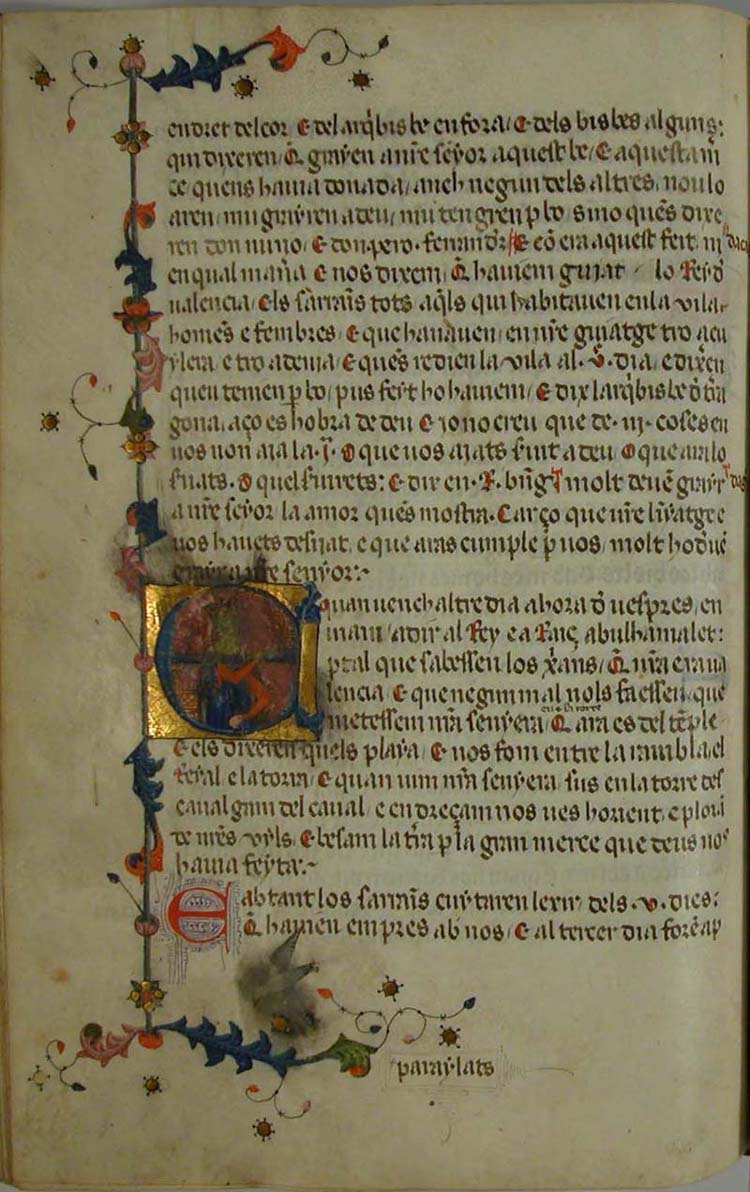 endret del cor. E del arq̄bisbe en fora / E dels bisbes alguns:
qui dixeren / Q̄ graÿen a nr̄e seÿor aquest be / E aquesta m̄
ce quens hauia donada / anch negun dels altres, nou lo
aren / ni u graÿren a deu / ni u tengren p bo sino quēs dixe
ren don nuno, E don pero. ferrandz̄ / E cō era aquest feit, ni
en qual man̄a E nos dixem / Q̄ hauiem guiat lo Reÿ d̄
ualencia / E ls sarrains tots aq̄ls qui habitauen en la vila.
homēs e fembres / E que hauauen / en nr̄e guiatge tro a cu
ÿlera e tro a denia / E quēs redien la vila al .v. dia / e dixēn
quen temen p bo / pus feÿt ho hauiem / E dix larq̄bisbe d̄ t̄ra
gona, aço es hobra de deu E io no creu que de .iij. coses en
uos non aia la .j. O que nos aiats seruit a deu O que ara lo
siruats. O quel siruirets: E dix en .R. bn̄g̃ molt deuē graÿr
a nr̄e seÿor la amor quēs mostra. Car ço que nr̄e linatge e
uos hauets desijat, e que aras cumple p uos / molt ho d̄uē
graÿr a nr̄e senÿor:~
E quan uench altre dia a hora d̄ uespres, en
uiam / a dir al Reÿ e a Raiç abulhamalet:
p tal que sabessen los x̄ans / Q̄ nr̄a era ua
lencia / E que negun mal nols faessen / que
metessem nr̄a senÿera en la torre / Q̄ ara es del tēple
E els dixeren quels plaÿa / E nos fom entre la rambla, el
reÿal e la torra / E quan uim nr̄a senÿera sus en la torre des
caualgam del caual e endreçam nos ues horient, e plora
de nr̄es vÿls. E besam la t̄ra p la gran merce que deus nos
hauia feÿta:~
E abtant los sarrains cuÿtaren lexir dels .v. dies:
Q̄ hauien empres ab nos / E al tercer dia forē ap
paraÿlats